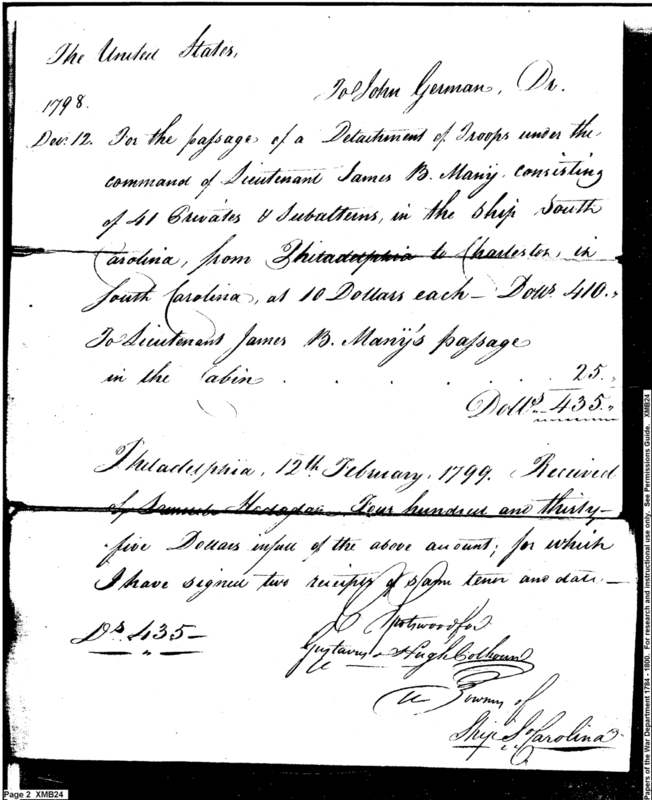 The United States,
To John German, Dr.
1798.
Decr. 12. For the passage of a Detachment of Troops under the
command of Lieutenant James B. Many, consisting
of 41 Privates & Subalterns, in the Ship South
Carolina, from Philadelphia to Charleston, in
South Carolina, at 10 Dollars each — Dolls. 410.
To Lieutenant James B. Many's passage
in the Cabin . . . . . 25.
Dolls. 435.
Philadelphia, 12th February, 1799. Received
of Samuel Hodgdon Four hundred and thirty-
five Dollars in full of the above amount; for which
I have signed two receipts of same tenor and date. —
Ds. 435 —
Spotswood for
Gustavus & Hugh Colhoun
Owners of
Ship So. Carolina
Page 2 XMB24
Papers of the War Department 1784 - 1800. For research and instructional use only. See Permissions Guide. XMB24